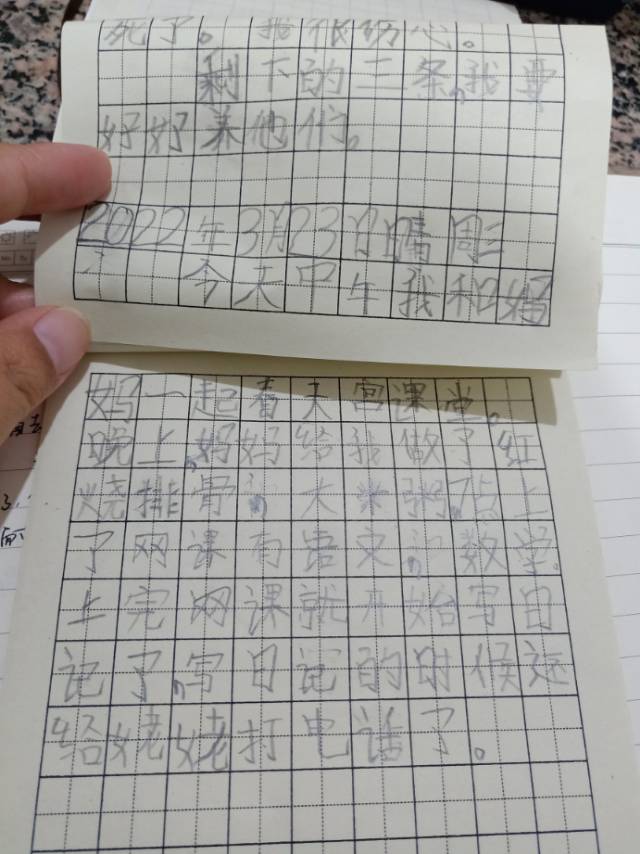 死了。我很伤心。
剩下的三条,我要
好好养他们。
2022年3月23日晴周三
今天中午我和妈
妈一起看天宫课堂。
晚上,妈妈给我做了红
烧排骨,大米粥,还上
了网课有语文,数学。
上完网课就开始写日
记了,写日记的时候还
给姥姥打电话了。